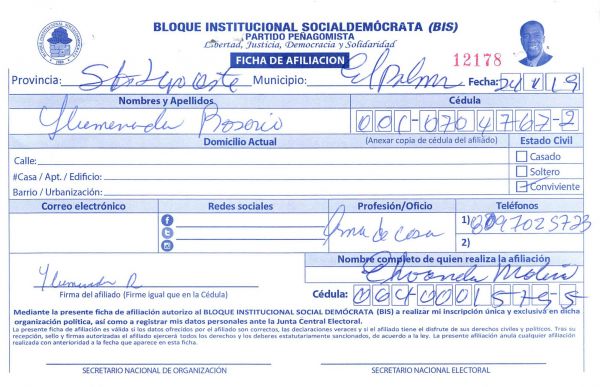 BLOQUE INSTITUCIONAL SOCIALDEMÓCRATA (BIS)
PARTIDO PEÑAGOMISTA
Libertad, Justicia, Democracia y Solidaridad
FICHA DE AFILIACION
12178
Provincia: Sto Dgo Oeste Municipio: El Palmar Fecha: 24
Nombres y Apellidos Cédula
Ylumenada Rosario 001-0704767-2
Domicilio Actual (Anexar copia de cédula del afiliado) Estado Civil
Calle: Casado
#Casa / Apt. / Edificio: Soltero
Barrio / Urbanización: Conviviente
Correo electrónico Redes sociales Profesión/Oficio Teléfonos
Ama de casa 1) 8097025723
2)
Nombre completo de quien realiza la afiliación
Firma del afiliado (Firme igual que en la Cédula) Cédula:
Mediante la presente ficha de afiliación autorizo al BLOQUE INSTITUCIONAL SOCIAL DEMÓCRATA (BIS) a realizar mi inscripción única y exclusiva en dicha
organización política, así como a registrar mis datos personales ante la Junta Central Electoral.
La presente ficha de afiliación es válida si los datos ofrecidos por el afiliado son correctos, las declaraciones veraces y si el afiliado tiene el disfrute de sus derechos civiles y políticos. Tras su
recepción, sello y firmas autorizadas el afiliado ejercerá todos los derechos y los deberes estatutariamente sancionados, de acuerdo a la ley. La presente afiliación anula cualquier afiliación
realizada con anterioridad a la fecha que aparece en esta ficha.
SECRETARIO NACIONAL DE ORGANIZACIÓN SECRETARIO NACIONAL ELECTORAL